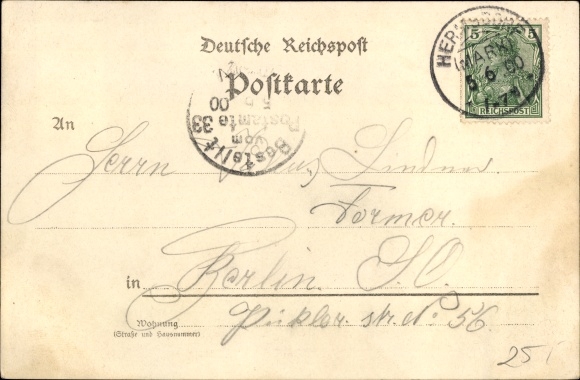 Deutsche Reichspost
Postkarte
5 5
REICHSPOST
(MARK)
5.6.00
Bestellt
vom
Postamte 33
00
An
Herrn Lindner
Former.
in Berlin. S.O.
Wohnung
(Straße und Hausnummer)
Pückler str. No 56
25